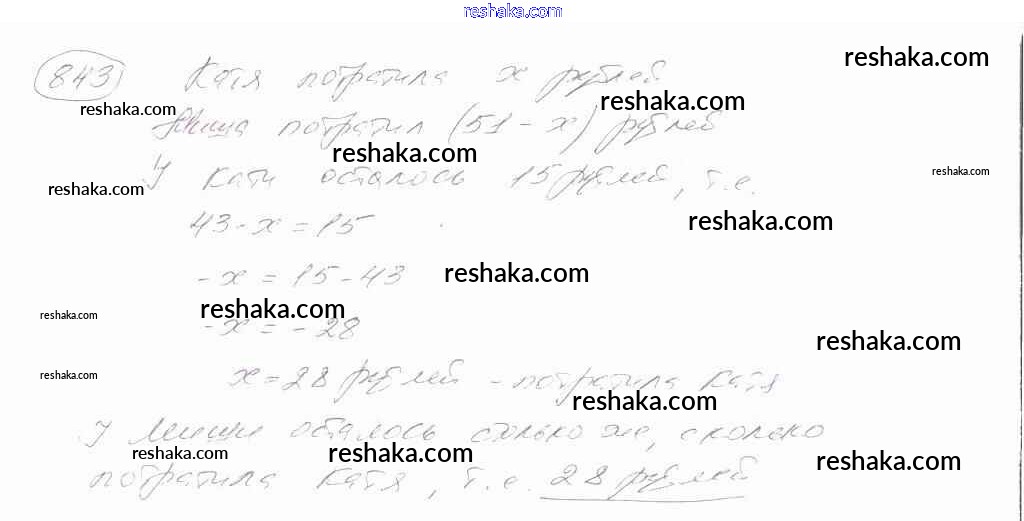 reshaka.com
843 Катя потратила x рублей
reshaka.com
reshaka.com
reshaka.com
Миша потратил (51 - x) рублей
reshaka.com
У Кати осталось 15 рублей, т.е.
reshaka.com
reshaka.com
43 - x = 15
reshaka.com
- x = 15 - 43
reshaka.com
reshaka.com
reshaka.com
- x = - 28
reshaka.com
x = 28 рублей - потратила Катя
reshaka.com
reshaka.com
У Миши осталось столько же, сколько
reshaka.com
reshaka.com
reshaka.com
потратила Катя, т.е. 28 рублей